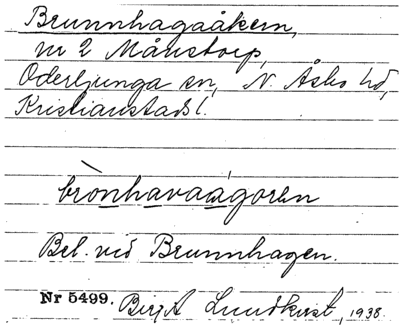 Brunnhagaåkern,
nr 2 Månstorp,
Oderljunga sn, N. Åsbo hd,
Kristianstads l.
brònhavaágoren
Bel. vid Brunnhagen.
Nr 5499. Birgit Lundkvist, 1938.